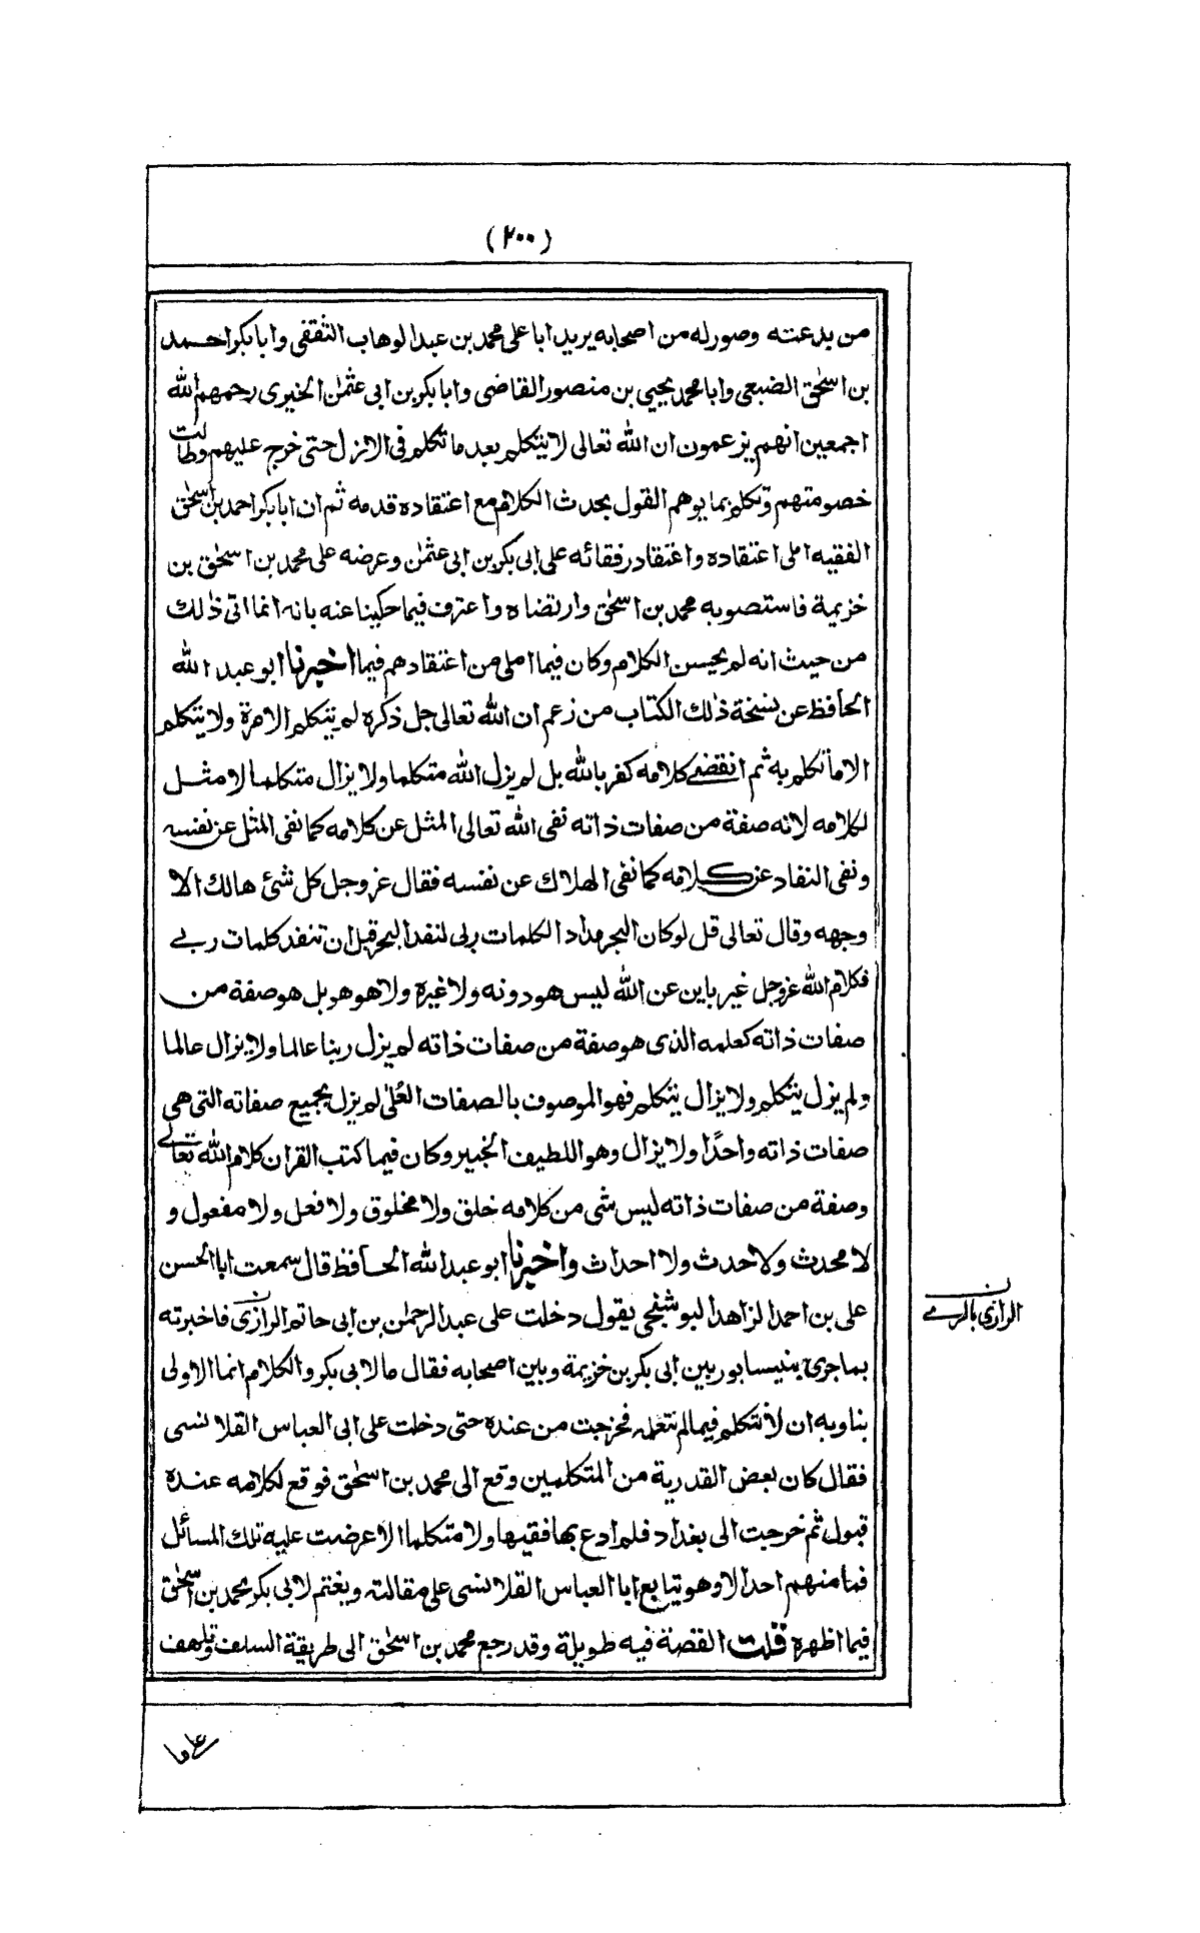 (٢٠٠)
من بدعته وصورله من اصحابه يريد ابا على محمد بن عبد الوهاب الثقفى وابا بكر احمد
بن اسحٰق الضبعى وابا محمد يحيى بن منصور القاضى وابا بكر بن ابى عثمٰن الحيرى رحمهم الله
اجمعين انهم يزعمون ان الله تعالى لا يتكلم بعد ما تكلم فى الازل حتى خرج عليهم وطالت
خصومتهم وتكلم بما يوهم القول بحدث الكلام مع اعتقاده قدمه ثم ان ابا بكر احمد بن اسحٰق
الفقيه املى اعتقاده واعتقاد رفقائه على ابى بكر بن ابى عثمٰن وعرضه على محمد بن اسحٰق بن
خزيمة فاستصوبه محمد بن اسحٰق وارتضاه واعترف فيما حكينا عنه بانه انما اتى ذٰلك
من حيث انه لم يحسن الكلام وكان فيما املى من اعتقادهم فيما اخبرنا ابو عبد الله
الحافظ عن نسخة ذٰلك الكتاب من زعم ان الله تعالى جل ذكره لم يتكلم الا مرة ولا يتكلم
الا ما تكلم به ثم انقضى كلامه كفر بالله بل لم يزل الله متكلما ولا يزال متكلما لا مثل
لكلامه لانه صفة من صفات ذاته نفى الله تعالى المثل عن كلامه كما نفى المثل عن نفسه
ونفى النفاد عن كلامه كما نفى الهلاك عن نفسه فقال عز وجل كل شئ هالك الا
وجهه وقال تعالى قل لو كان البحر مدادا لكلمات ربى لنفد البحر قبل ان تنفد كلمات ربى
فكلام الله عز وجل غير باين عن الله ليس هو دونه ولا غيره ولا هو هو بل هو صفة من
صفات ذاته كعلمه الذى هو صفة من صفات ذاته لم يزل ربنا عالما ولا يزال عالما
ولم يزل يتكلم ولا يزال يتكلم فهو الموصوف بالصفات العُلىٰ لم يزل بجميع صفاته التى هى
صفات ذاته واحدًا ولا يزال وهو اللطيف الخبير وكان فيما كتب القران كلام الله تعالى
وصفة من صفات ذاته ليس شى من كلامه خلق ولا مخلوق ولا فعل ولا مفعول و
لا محدث ولا حدث ولا احداث واخبرنا ابو عبد الله الحافظ قال سمعت ابا الحسن
على بن احمد الزاهد البوشنجى يقول دخلت على عبد الرحمٰن بن ابى حاتم الرازى فاخبرته
ن
الرازى بالرى
بما جرى بنيسابور بين ابى بكر بن خزيمة وبين اصحابه فقال ما لابى بكر والكلام انما الاولى
بنا وبه ان لا نتكلم فيما لم نتعلمه فخرجت من عنده حتى دخلت على ابى العباس القلانسى
فقال كان بعض القدرية من المتكلمين وقع الى محمد بن اسحٰق فوقع لكلامه عنده
قبول ثم خرجت الى بغداد فلم ادع بها فقيها ولا متكلما الا عرضت عليه تلك المسائل
فما منهم احد الا وهو يتابع ابا العباس القلانسى على مقالته ويغتم لابى بكر محمد بن اسحٰق
فيما اظهره قلت القصة فيه طويلة وقد رجع محمد بن اسحٰق الى طريقة السلف وتلهف
على ما